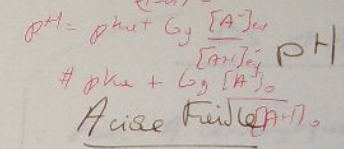 pH = pka + log [A-]eq
[AH]eq pH
# pka + log [A-]o
Acide Faible [AH]o